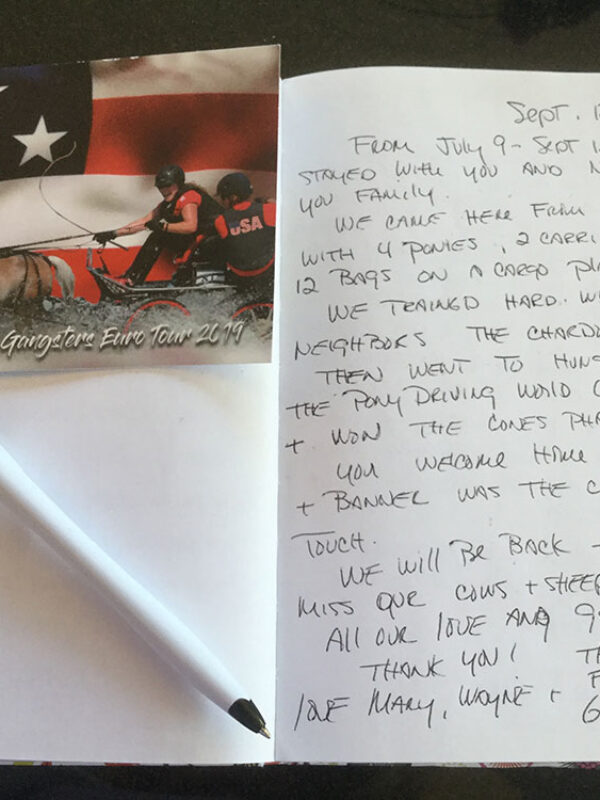 USA
Gangsters Euro Tour 2019
Sept. 1
FROM JULY 9 - SEPT 1
STAYED WITH YOU AND
YOU FAMILY.
WE CAME HERE FROM
WITH 4 PONIES, 2 CARRI
12 BAGS ON A CARGO PLA
WE TRAINED HARD. W
NEIGHBORS THE CHARDO
THEN WENT TO HUNG
THE PONY DRIVING WORLD C
+ WON THE CONES PHA
YOU WELCOME HOME
+ BANNER WAS THE C
TOUCH.
WE WILL BE BACK -
MISS OUR COWS + SHEEP
ALL OUR LOVE AND
THANK YOU! TH
LOVE MARY, WAYNE +